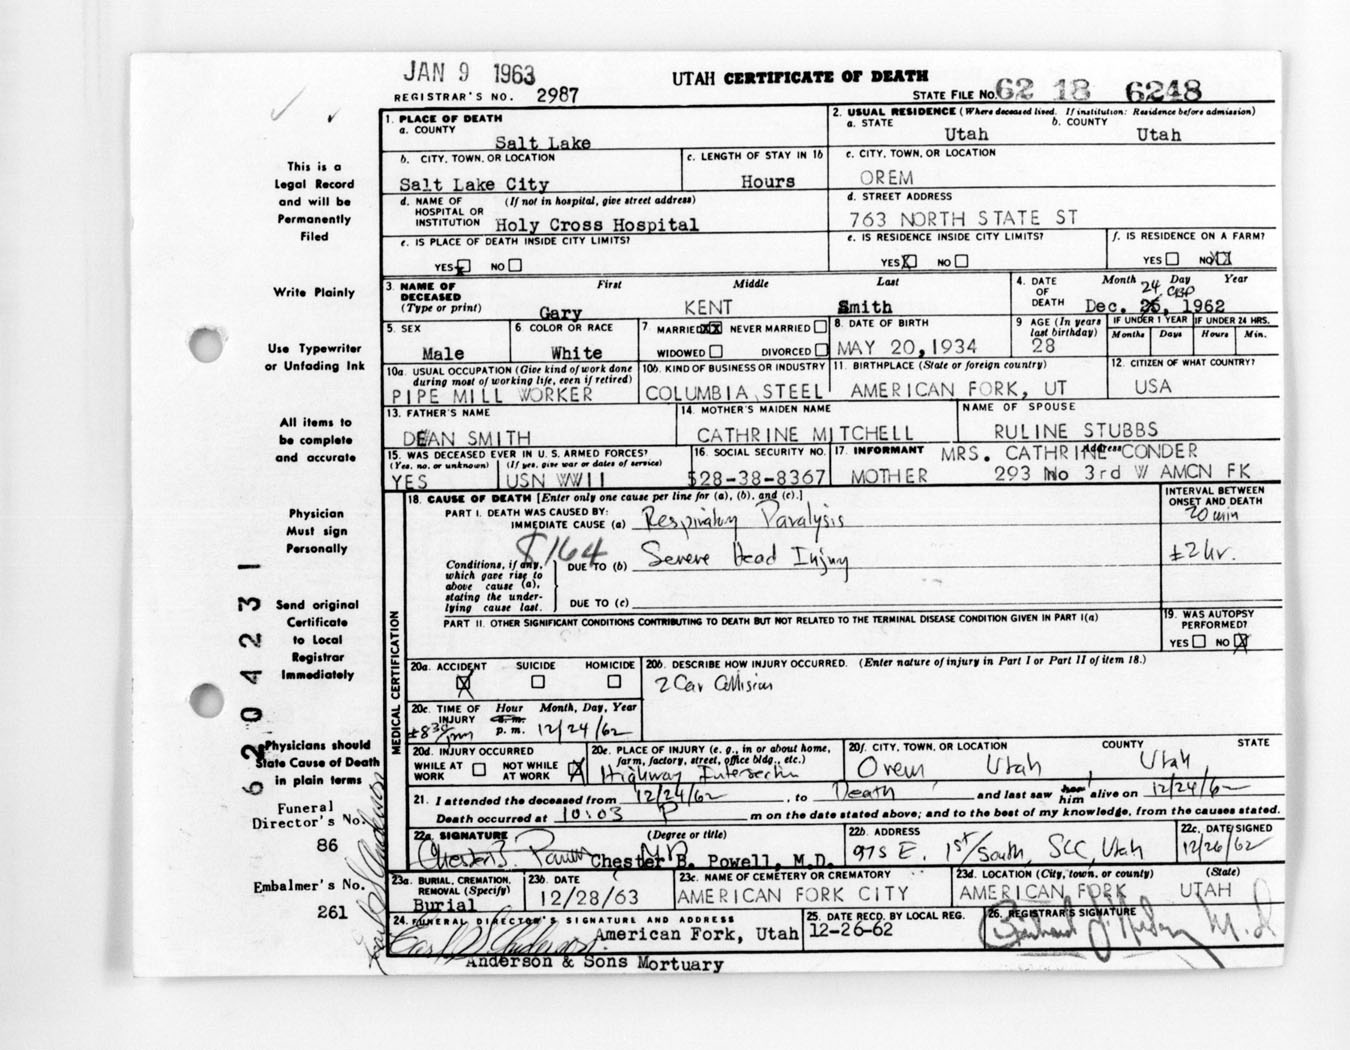 JAN 9 1963
UTAH CERTIFICATE OF DEATH
REGISTRAR'S NO. 2987
STATE FILE NO. 62 18 6248
This is a
Legal Record
and will be
Permanently
Filed
Write Plainly
Use Typewriter
or Unfading Ink
All items to
be complete
and accurate
Physician
Must sign
Personally
Send original
Certificate
to Local
Registrar
Immediately
Physicians should
State Cause of Death
in plain terms
Funeral
Director's No.
86
Embalmer's No.
261
62 04231
1. PLACE OF DEATH
a. COUNTY
Salt Lake
2. USUAL RESIDENCE (Where deceased lived. If institution: Residence before admission)
a. STATE b. COUNTY
Utah Utah
b. CITY, TOWN, OR LOCATION
Salt Lake City
c. LENGTH OF STAY IN 1b
Hours
c. CITY, TOWN, OR LOCATION
OREM
d. NAME OF HOSPITAL OR INSTITUTION (If not in hospital, give street address)
Holy Cross Hospital
d. STREET ADDRESS
763 NORTH STATE ST
e. IS PLACE OF DEATH INSIDE CITY LIMITS?
YES NO
e. IS RESIDENCE INSIDE CITY LIMITS?
YES NO
f. IS RESIDENCE ON A FARM?
YES NO
3. NAME OF DECEASED (Type or print)
First Middle Last
Gary KENT Smith
4. DATE OF DEATH
Month Day Year
24 CBP
Dec. 25, 1962
5. SEX
Male
6 COLOR OR RACE
White
7 MARRIED NEVER MARRIED
WIDOWED DIVORCED
8. DATE OF BIRTH
MAY 20,1934
9 AGE (In years last birthday)
28
IF UNDER 1 YEAR
Months Days
IF UNDER 24 HRS.
Hours Min.
10a. USUAL OCCUPATION (Give kind of work done during most of working life, even if retired)
PIPE MILL WORKER
10b. KIND OF BUSINESS OR INDUSTRY
COLUMBIA STEEL
11. BIRTHPLACE (State or foreign country)
AMERICAN FORK, UT
12. CITIZEN OF WHAT COUNTRY?
USA
13. FATHER'S NAME
DEAN SMITH
14. MOTHER'S MAIDEN NAME
CATHRINE MITCHELL
NAME OF SPOUSE
RULINE STUBBS
15. WAS DECEASED EVER IN U. S. ARMED FORCES?
(Yes, no, or unknown) (If yes, give war or dates of service)
YES USN WWII
16. SOCIAL SECURITY NO.
528-38-8367
17. INFORMANT Address
MRS. CATHRINE CONDER
MOTHER 293 No 3rd W AMCN FK
MEDICAL CERTIFICATION
18. CAUSE OF DEATH [Enter only one cause per line for (a), (b), and (c).]
INTERVAL BETWEEN ONSET AND DEATH
PART I. DEATH WAS CAUSED BY:
IMMEDIATE CAUSE (a) Respiratory Paralysis 20 min
8164
Conditions, if any, which gave rise to above cause (a), stating the underlying cause last.
DUE TO (b) Severe Head Injury ±2 hr.
DUE TO (c)
PART II. OTHER SIGNIFICANT CONDITIONS CONTRIBUTING TO DEATH BUT NOT RELATED TO THE TERMINAL DISEASE CONDITION GIVEN IN PART I(a)
19. WAS AUTOPSY PERFORMED?
YES NO
20a. ACCIDENT SUICIDE HOMICIDE
20b. DESCRIBE HOW INJURY OCCURRED. (Enter nature of injury in Part I or Part II of item 18.)
2 Car Collision
20c. TIME OF INJURY Hour Month, Day, Year
±8 30 pm a. m. p. m. 12/24/62
20d. INJURY OCCURRED
WHILE AT WORK NOT WHILE AT WORK
20e. PLACE OF INJURY (e. g., in or about home, farm, factory, street, office bldg., etc.)
Highway Intersection
20f. CITY, TOWN, OR LOCATION COUNTY STATE
Orem, Utah, Utah
21. I attended the deceased from 12/24/62, to Death and last saw her him alive on 12/24/62
Death occurred at 10:03 P m on the date stated above; and to the best of my knowledge, from the causes stated.
22a. SIGNATURE (Degree or title)
Chester B. Powell MD
Chester B. Powell, M.D.
22b. ADDRESS
975 E. 1st South, SLC, Utah
22c. DATE SIGNED
12/26/62
23a. BURIAL, CREMATION, REMOVAL (Specify)
Burial
23b. DATE
12/28/63
23c. NAME OF CEMETERY OR CREMATORY
AMERICAN FORK CITY
23d. LOCATION (City, town, or county) (State)
AMERICAN FORK UTAH
24. FUNERAL DIRECTOR'S SIGNATURE AND ADDRESS
American Fork, Utah
Anderson & Sons Mortuary
25. DATE RECD. BY LOCAL REG.
12-26-62
26. REGISTRAR'S SIGNATURE